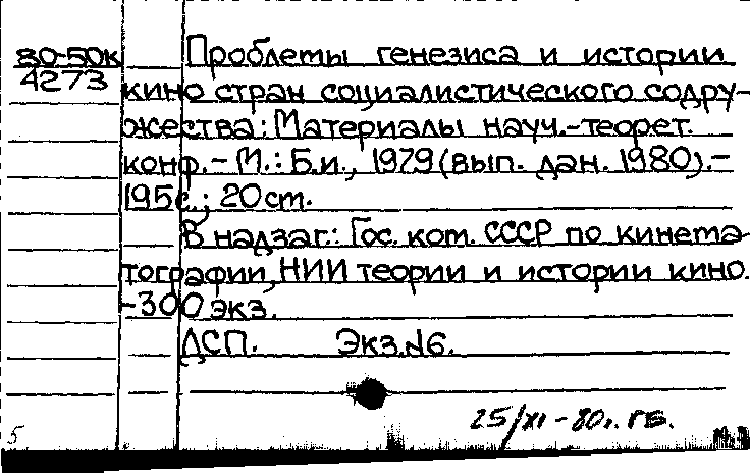 80-50к Проблемы генезиса и истории
4273 кино стран социалистического содру-
жества: Материалы науч.-теорет.
конф. - М.: Б.и., 1979 (вып. дан. 1980). -
195с.; 20 ст.
В надзаг.: Гос. ком. СССР по кинема
тографии, НИИ теории и истории кино.
-300 экз.
ДСП. Экз.№6.
25/XI-80г. ГБ.
5